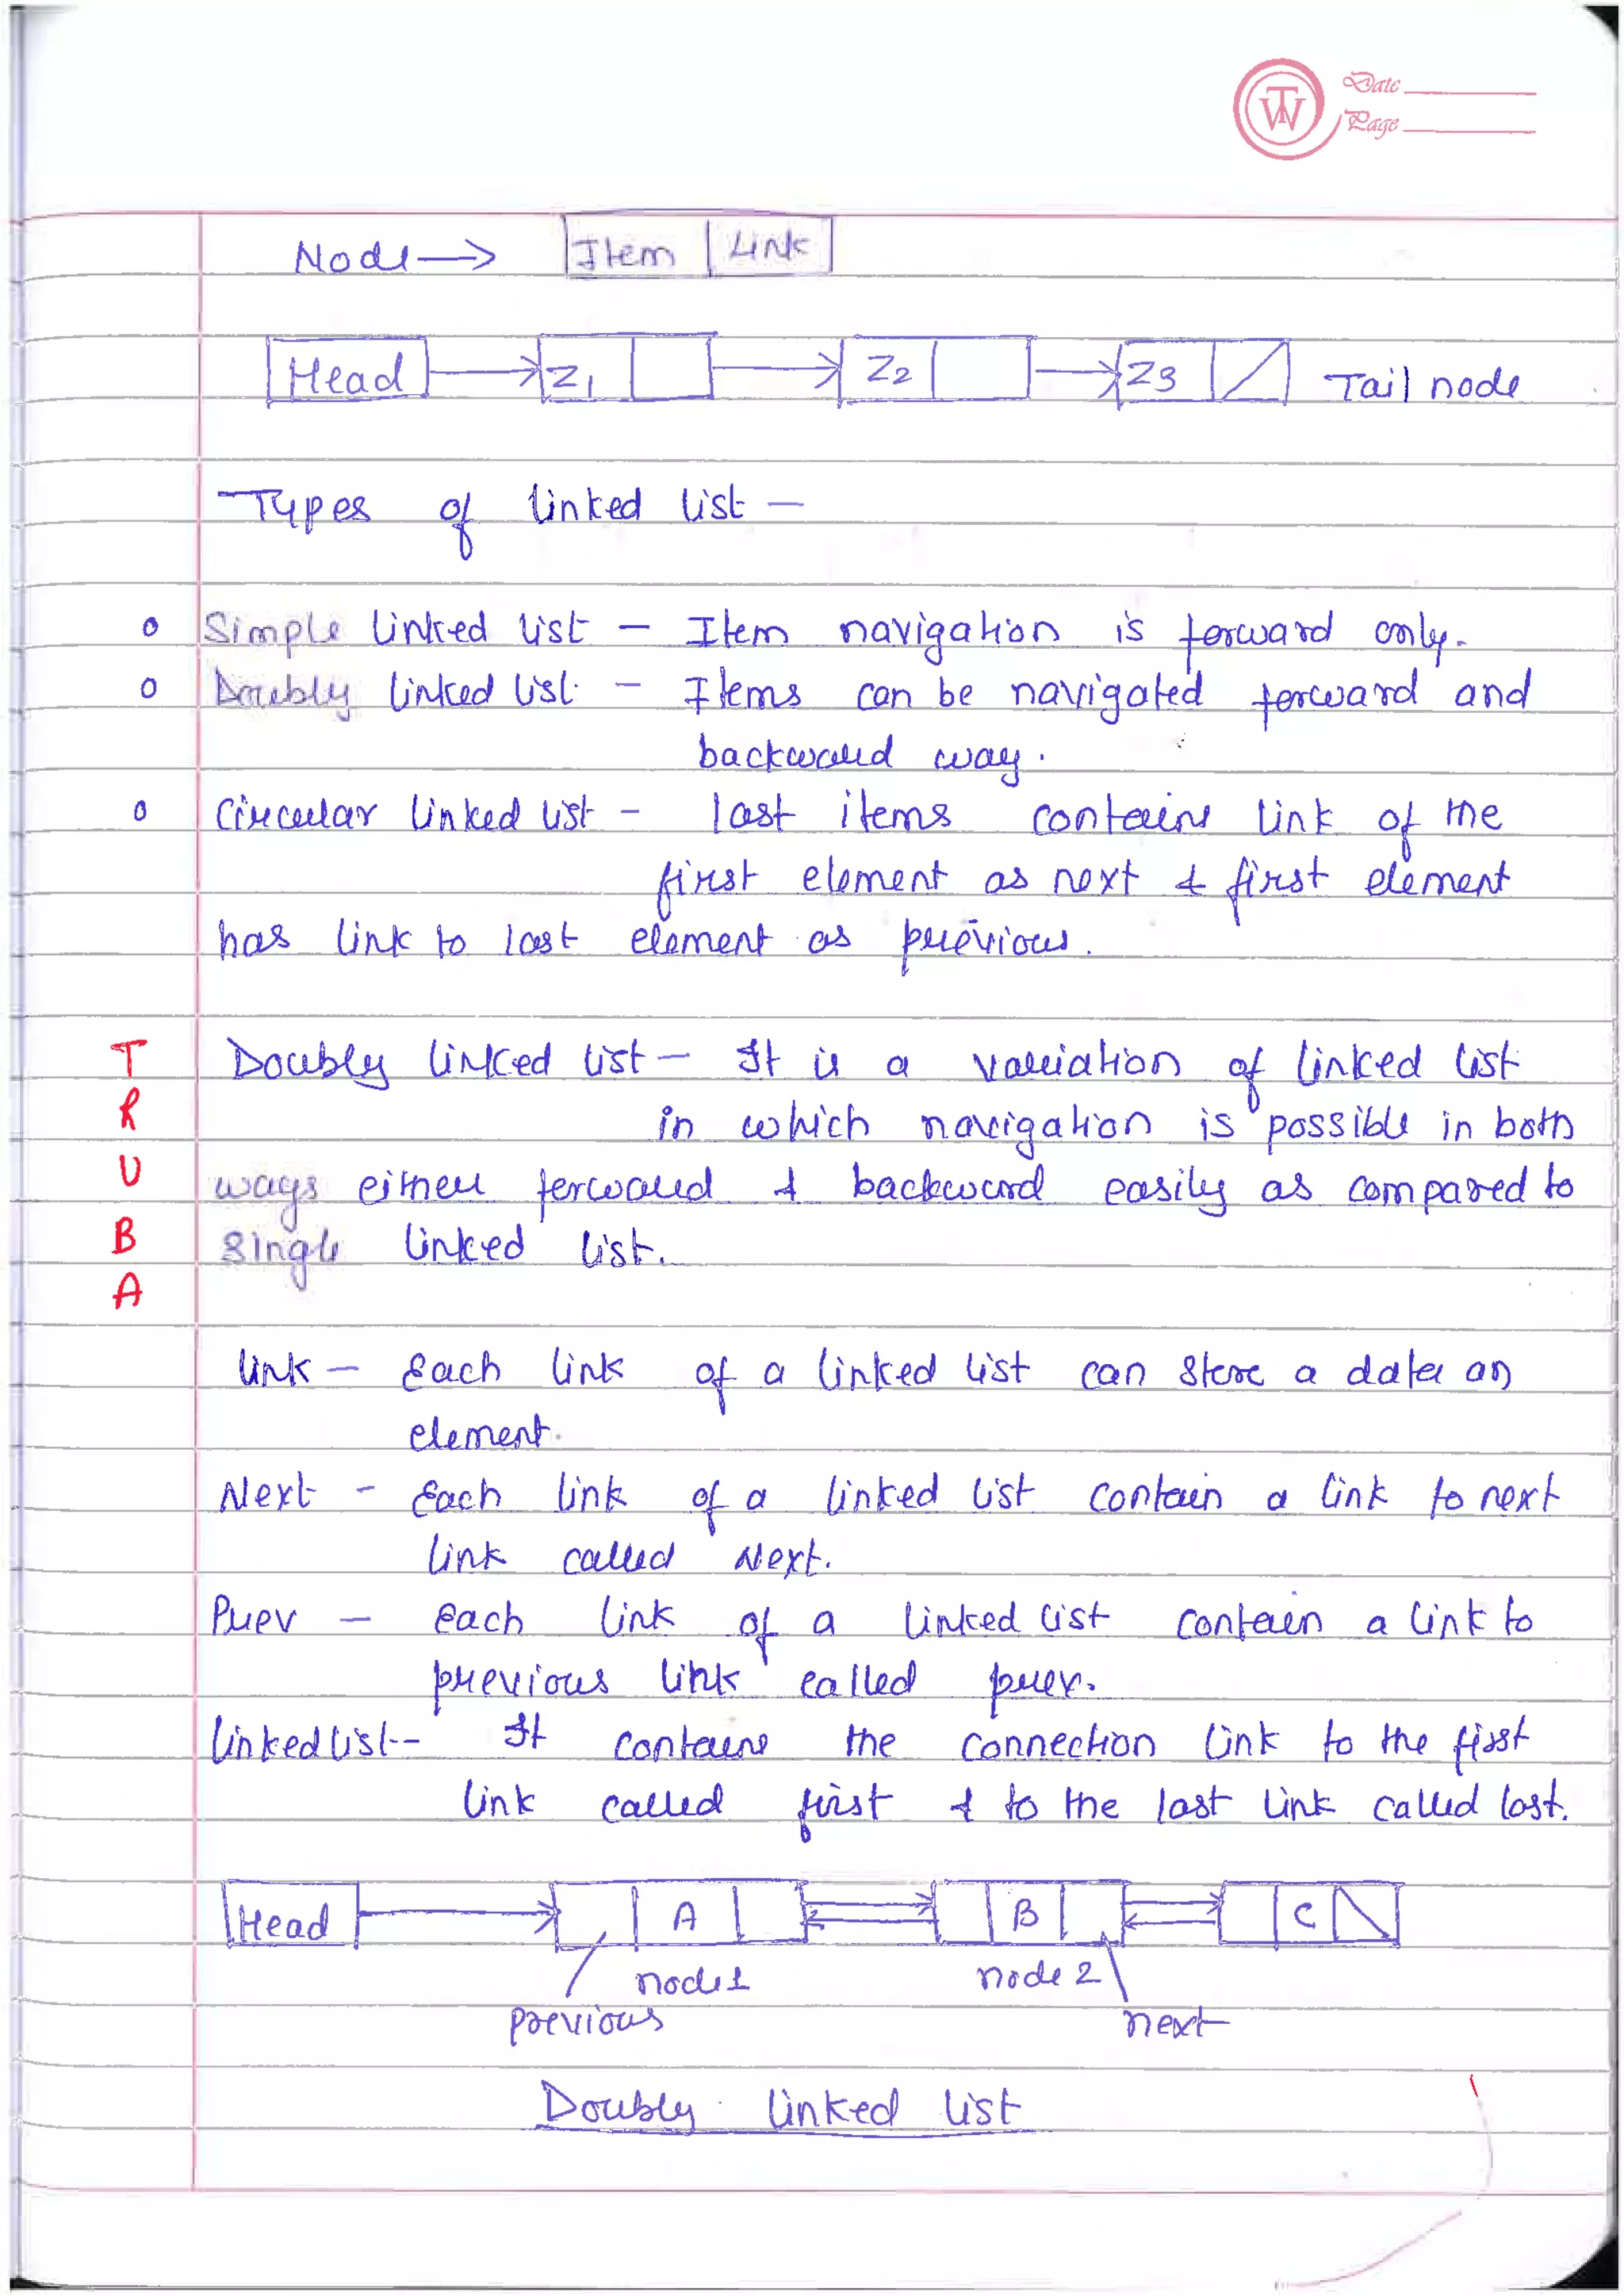 Date
Page
Node → Item Link
Head Z1 Z2 Z3 Tail node
Types of linked list —
o Simple linked list — Item navigation is forward only.
o Doubly linked list — Items can be navigated forward and
backward way.
o Circular linked list - last items contains link of the
first element as next & first element
has link to last element as previous.
T
R
U
B
A
Doubly linked list — It is a variation of linked list
in which navigation is possible in both
ways either forward & backward easily as compared to
single linked list.
link — Each link of a linked list can store a data an
element.
Next - Each link of a linked list contain a link to next
link called Next.
Prev — each link of a linked list contain a link to
previous link called prev.
linked list- It contains the connection link to the first
link called first & to the last link called last.
Head A B C
node 1 node 2
previous next
Doubly linked list